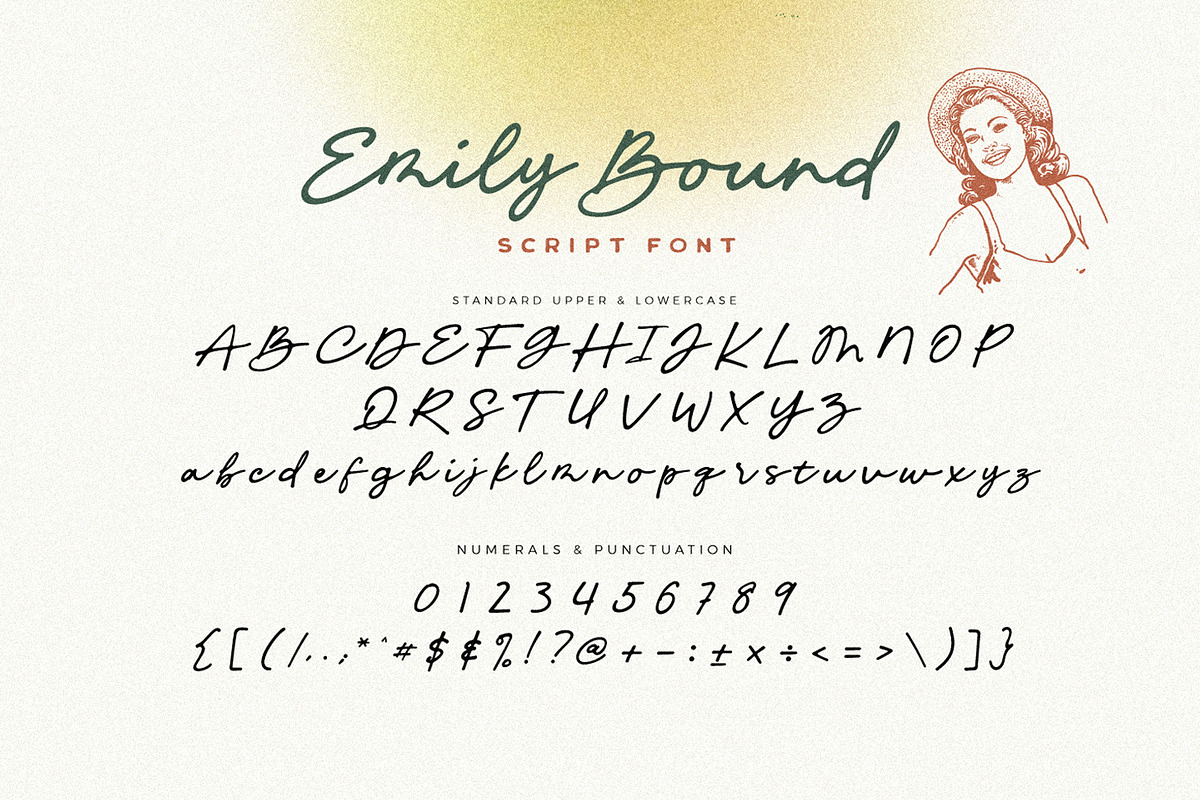 Emily Bound
SCRIPT FONT
STANDARD UPPER & LOWERCASE
A B C D E F G H I J K L M N O P
Q R S T U V W X Y Z
a b c d e f g h i j k l m n o p q r s t u v w x y z
NUMERALS & PUNCTUATION
0 1 2 3 4 5 6 7 8 9
{ [ ( / . , ; * ^ # $ & % ! ? @ + - : ± × ÷ < = > \ ) ] }